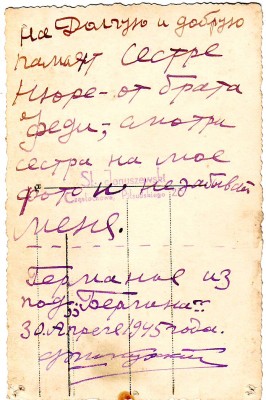 На Долгую и добрую
памият сестре
Нюре - от брата
феди; смотри
сестра на мое
фото и не забывай
St. Januszewski
Częstochowa, Piłsudskiego
меня.
Германия из
под Берлина
30 Апреля 1945 года.